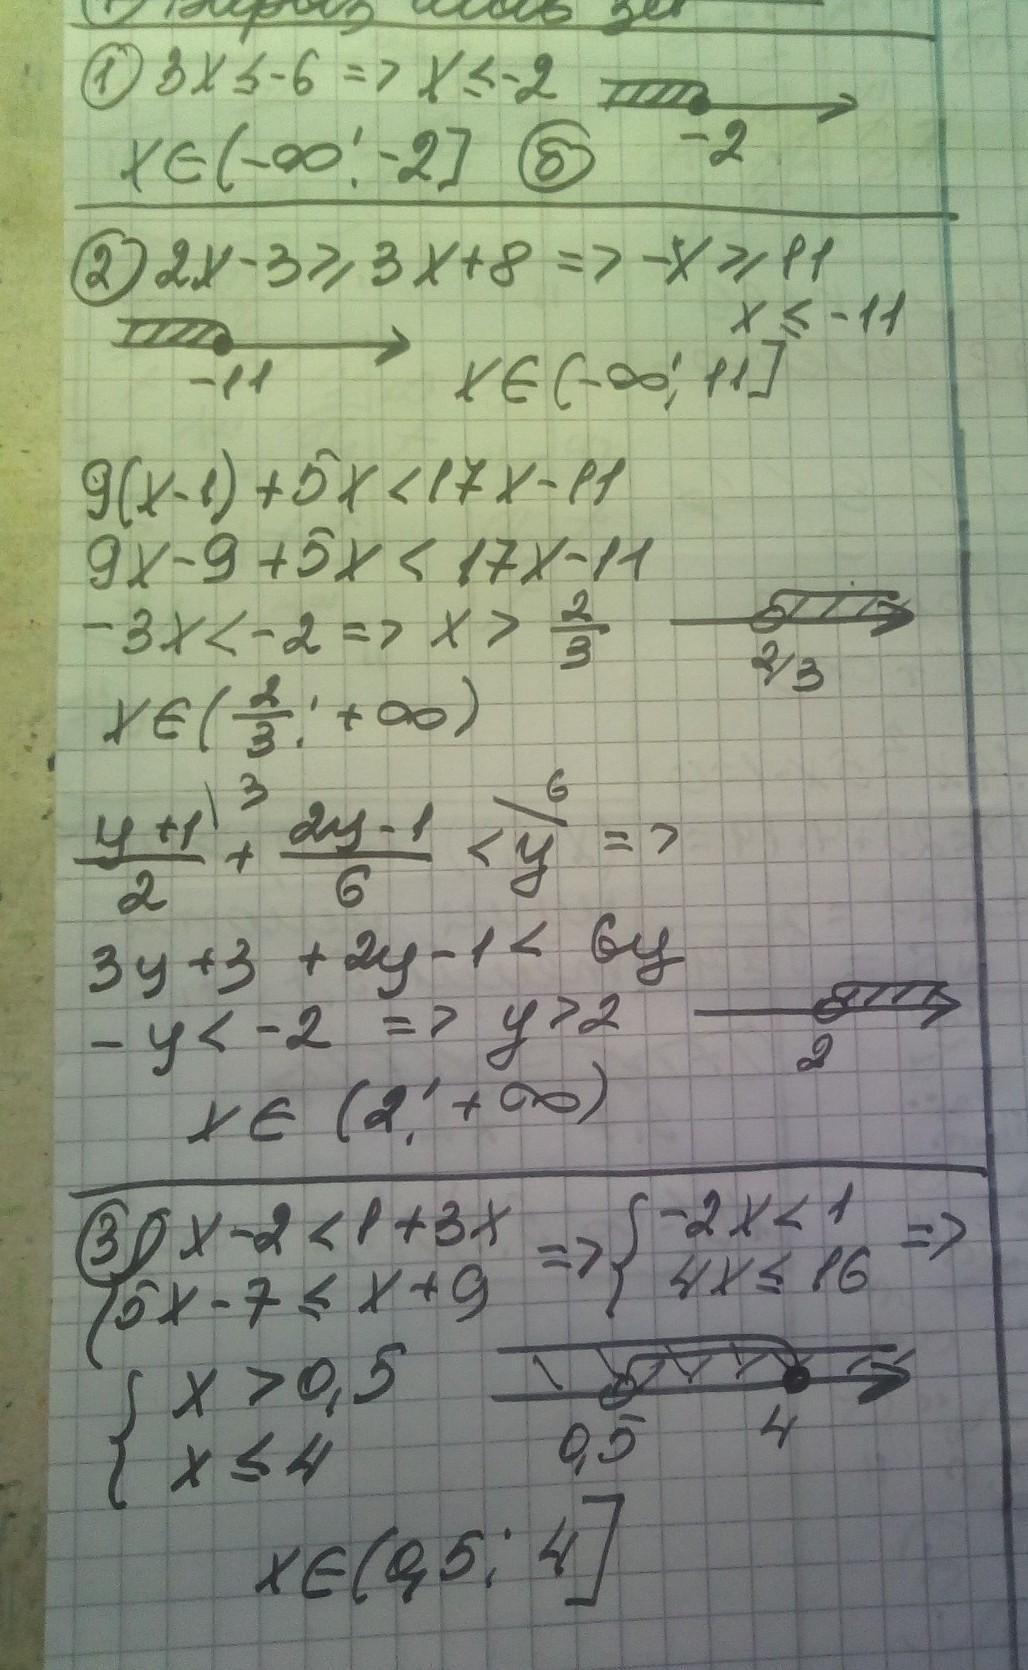 ① 3x ≤ -6 => x ≤ -2
-2
x ∈ (-∞; -2] ⑤
② 2x - 3 ≥ 3x + 8 => -x ≥ 11
x ≤ -11
-11
x ∈ (-∞; 11]
9(x-1) + 5x < 17x - 11
9x - 9 + 5x < 17x - 11
-3x < -2 => x > 2/3
2/3
x ∈ (2/3; +∞)
(y+1)/2 \3 + (2y-1)/6 < y /6 =>
3y + 3 + 2y - 1 < 6y
-y < -2 => y > 2
2
x ∈ (2; +∞)
③ { x - 2 < 1 + 3x => { -2x < 1 =>
5x - 7 ≤ x + 9 4x ≤ 16
{ x > 0,5
x ≤ 4
0,5 4
x ∈ (0,5; 4]